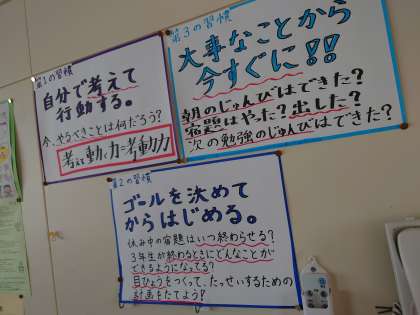 第1の習慣
自分で考えて
行動する。
今、やるべきことは何だろう?
考えて動く力=考動力
第3の習慣
大事なことから
今すぐに!!
朝のじゅんびはできた?
宿題はやった?出した?
次の勉強のじゅんびはできた?
第2の習慣
ゴールを決めて
からはじめる。
休み中の宿題はいつ終わらせる?
3年生が終わるときにどんなことが
できるようになってる?
目ひょうをつくって、たっせいするための
計画をたてよう!